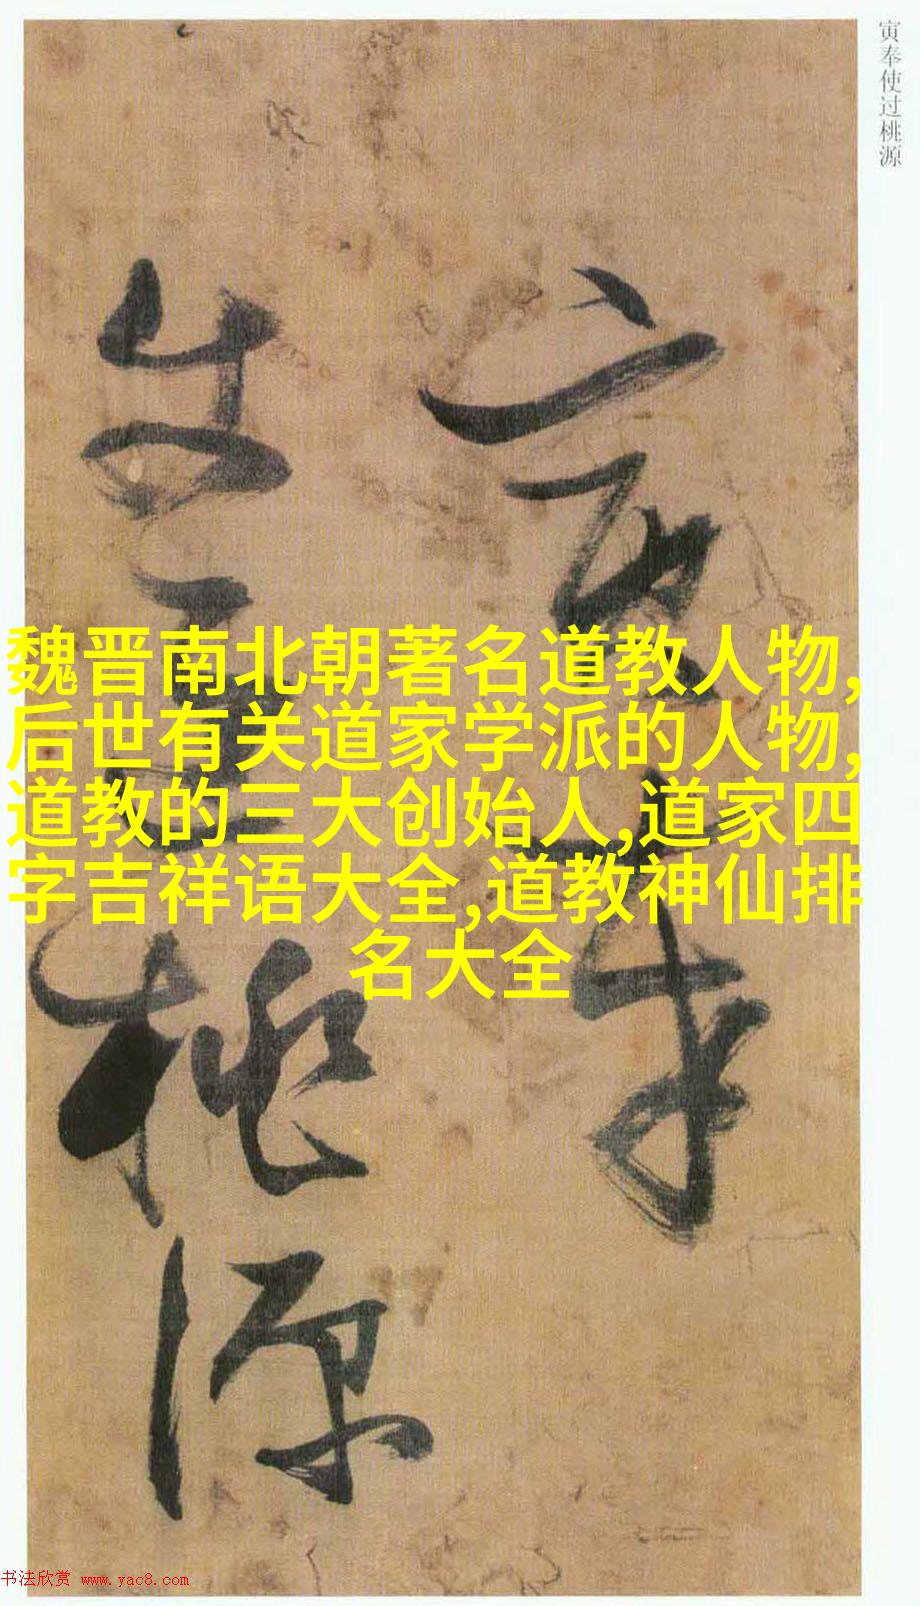 寅奉使过桃源
寅奉
使过桃源
魏晋南北朝著名道教人物,
后世有关道家学派的人物,
道教的三大创始人,道家四
字吉祥语大全,道教神仙排
名大全
书法欣赏 www.yac8.com